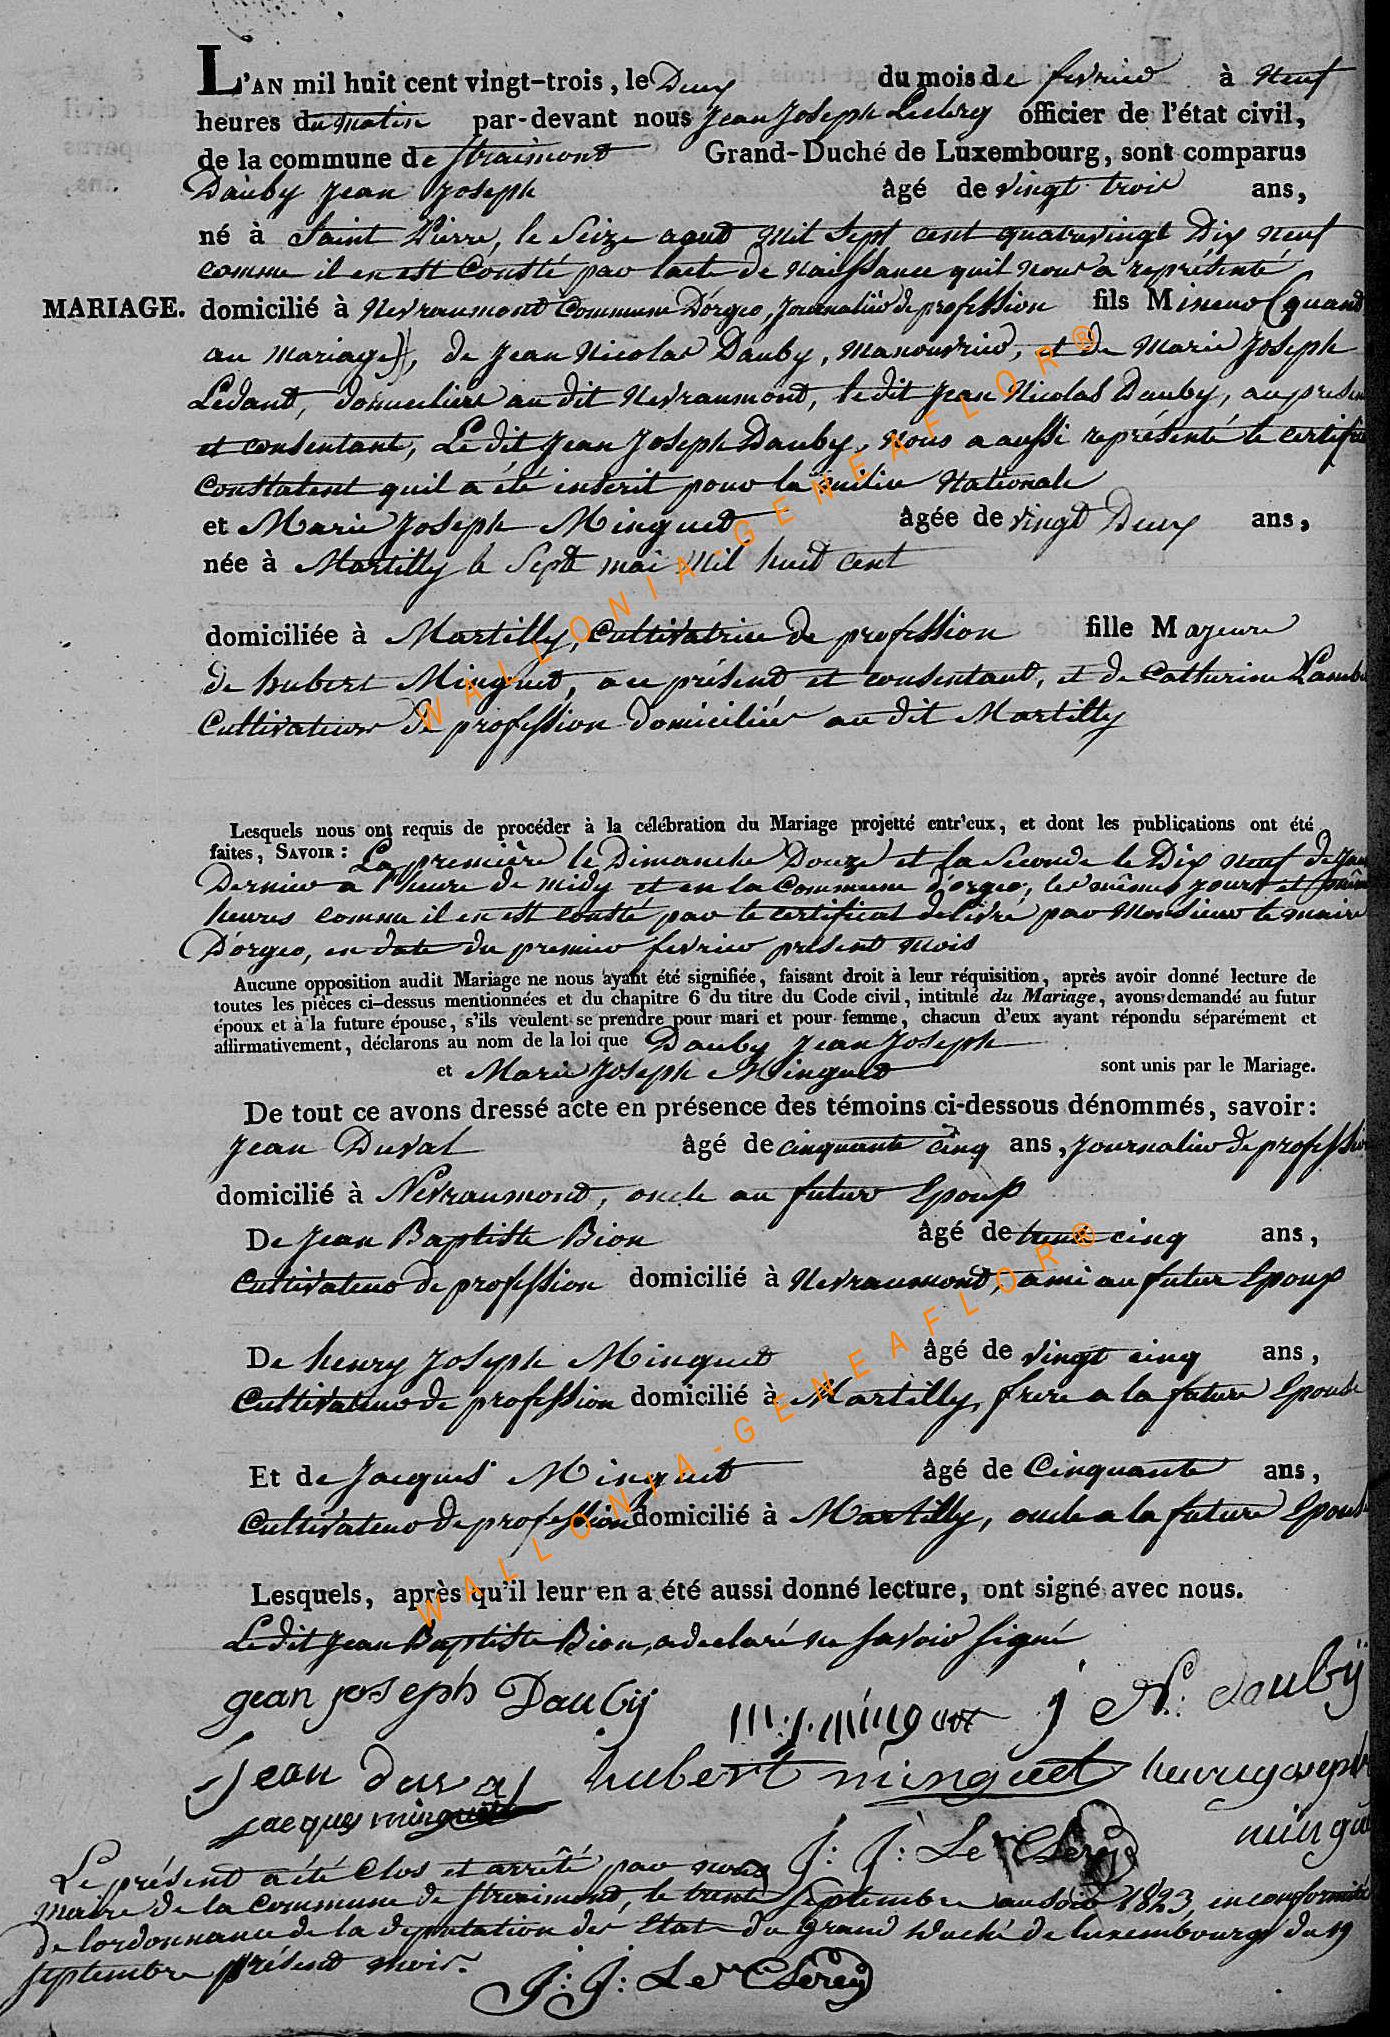 L'AN mil huit cent vingt-trois, le Deux du mois de fevrier à Neuf
heures du matin par-devant nous Jean Joseph Leclerq officier de l'état civil,
de la commune de Straimont Grand-Duché de Luxembourg, sont comparus
Dauby Jean Joseph âgé de vingt trois ans,
né à Saint Pierre, le Seize aout Mil Sept cent quatrevingt Dix neuf
comme il en est Consté par lacte de Naissance quil nous a représenté
MARIAGE. domicilié à Nevraumont Commune D'orgeo, Journalier de profession fils Mineur (quand
au mariage), de Jean Nicolas Dauby, Manouvrier, et de Marie Joseph
Ledant, domiciliers au dit Nevraumont, le dit Jean Nicolas Dauby, au présent
et consentant, Le dit Jean Joseph Dauby, nous a aussi représenté le certificat
Constatent quil a été inscrit pour la milice Nationale
et Marie Joseph Minguet âgée de vingt Deux ans,
née à Martilly le Sept mai Mil huit cent
domiciliée à Martilly, Cultivatrice de profession fille Majeure
de hubert Minguet, a ce présent et consentant, et de Catherine
Cultivateurs de profession domiciliés au dit Martilly
Lesquels nous ont requis de procéder à la célébration du Mariage projetté entr'eux, et dont les publications ont été
faites, SAVOIR : La première le Dimanche Douze et la Seconde le Dix neuf de
Dernier a l'heure de midy et en la Commune d'orgeo, les mêmes jours et
heures comme il en est consté par le certificat delivré par Monsieur le maire
D'orgeo, en date du premier fevrier présent mois
Aucune opposition audit Mariage ne nous ayant été signifiée, faisant droit à leur réquisition, après avoir donné lecture de
toutes les pièces ci-dessus mentionnées et du chapitre 6 du titre du Code civil, intitulé du Mariage, avons demandé au futur
époux et à la future épouse, s'ils veulent se prendre pour mari et pour femme, chacun d'eux ayant répondu séparément et
affirmativement, déclarons au nom de la loi que Dauby Jean Joseph
et Marie Joseph Minguet sont unis par le Mariage.
De tout ce avons dressé acte en présence des témoins ci-dessous dénommés, savoir :
Jean Duval âgé de cinquante cinq ans, Journalier de profession
domicilié à Nevraumont, oncle au futur Epoux
De Jean Baptiste Bion âgé de trente cinq ans,
Cultivateur de profession domicilié à Nevraumont, ami au futur Epoux
De henry Joseph Minguet âgé de vingt cinq ans,
Cultivateur de profession domicilié à Martilly, frere a la future Epouse
Et de Jacques Minguet âgé de Cinquante ans,
Cultivateur de profession domicilié à Martilly, oncle a la future Epouse
Lesquels, après qu'il leur en a été aussi donné lecture, ont signé avec nous.
Ledit Jean Baptiste Bion, a declaré ne savoir signé
jean joseph Dauby m: j. minguet j N: dauby
jean duval hubert minguet henry joseph
jacques minguet J: J: Leclercq
Le présent a été Clos et arrêté par nous
maire de la Commune de Straimont, le trente Septembre au soir 1823, en conformité
de lordonnance de la deputation des Etats du Grand duché de luxembourg du 19
septembre présent mois.
J: J: Leclercq
WALLONIA-GENEAFLOR®
WALLONIA-GENEAFLOR®